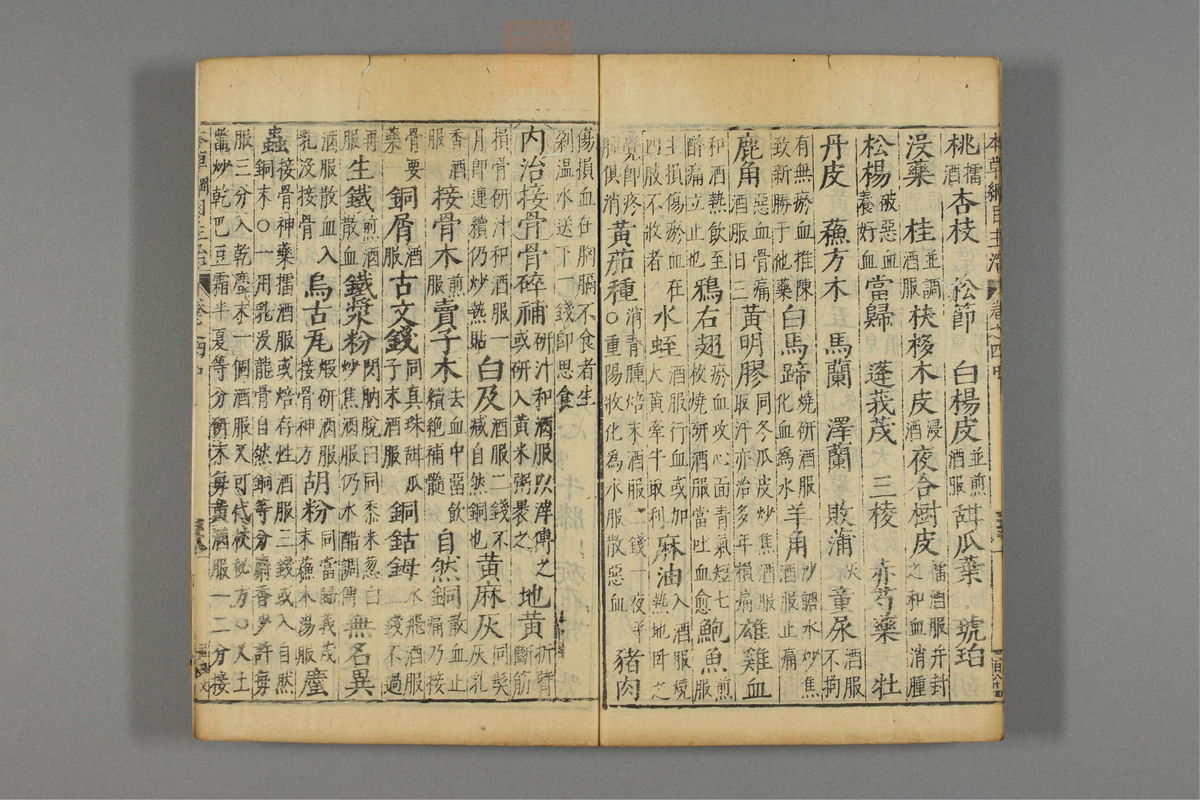 桃擂酒杏枝 松節 白楊皮並煎酒服甜瓜葉 琥珀
没藥 桂並調酒服扶移木皮浸酒夜合樹皮擂酒服并封之和血消腫
松楊破惡血養好血當歸 蓬莪茂 三棱 赤芍藥 牡
丹皮 蘇方木 馬蘭 澤蘭 敗蒲灰童尿酒服不拘
有無瘀血推陳致新勝于他藥白馬蹄燒研酒服化血爲水羊角沙糖水炒焦酒服止痛
鹿角惡血骨痛酒服日三黃明膠同冬瓜皮炒焦酒服取汗亦治多年損痛雄雞血
和酒熱飲至醉痛立止也鴉右翅瘀血攻心面青氣短七枚燒研酒服當吐血愈鮑魚煎服
主損傷瘀血在四肢不收者水蛭酒服行血或加大黃牽牛取利麻油入酒服燒熱地臥之
覺即疼腫俱消黃茄種消青腫焙末酒服二錢一夜平○重陽收化爲水服散惡血豬肉
傷損血在胸膈不食者生剁温水送下一錢即思食
内治接骨骨碎補研汁和酒服以滓傅之或研入黃米粥裹之地黃折臂斷筋
損骨研汁和酒服一月即連續仍炒熱貼白及酒服二錢不減自然銅也黃麻灰同髮灰乳
香酒服接骨木煎酒服賣子木去血中留飲續絶補髓自然銅散血止痛乃接
骨要藥銅屑酒服古文錢同真珠甜瓜子末酒服銅鈷鉧水飛酒服二錢不過
再服生鐵煎酒散血鐵漿粉閃肭脫臼同黍米葱白炒焦酒服仍水醋調傅無名異
酒服散血入乳没接骨烏古瓦煅研酒服接骨神方胡粉同當歸莪茂末蘇木湯服䗪
蟲接骨神藥擂酒服或焙存性酒服三錢或入自然銅末○一用乳没龍骨自然銅等分麝香少許每
服三分入乾䗪末一個酒服又可代杖秘方○又土鱉炒乾巴豆霜半夏等分研末每黃酒服一二分接